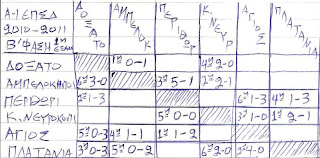 Α-1 ΕΠΣΔ
2010-2011
Β'ΦΑΣΗ
ΔΟΞΑΤΟ
ΑΜΠΕΛΟΚ
ΠΕΡΙΘΩΡ
Κ.ΝΕΥΡ
ΑΓΙΟΣ
ΠΛΑΤΑΝΙΑ
ΔΟΞΑΤΟ 1η 0-1 4η 2-0
ΑΜΠΕΛΟΚΗΠΟΙ 6η 3-0 3η 5-1 2η 2-1
ΠΕΡΙΘΩΡΙ 2η 1-3 6η 1-3 4η 1-3
Κ.ΝΕΥΡΟΚΟΠΙ 5η 0-0 3η 1-0 1η 2-1
ΑΓΙΟΣ 5η 0-3 4η 1-1 1η 1-2
ΠΛΑΤΑΝΙΑ 3η 0-3 5η 0-2 6η 2-0 2η 4-0